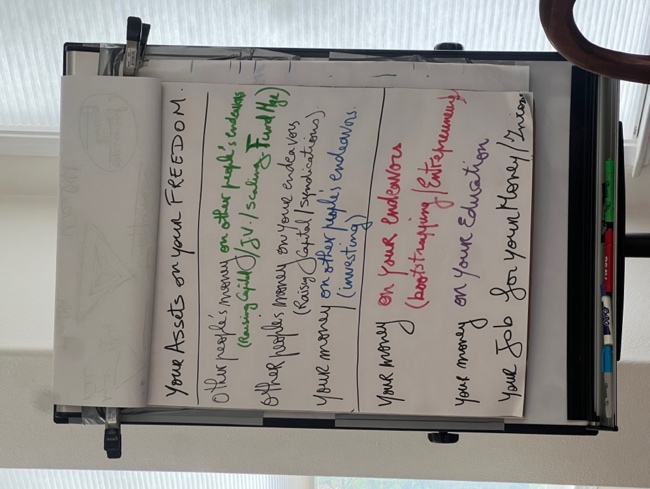 Your Assets on your FREEDOM.
Other people's money on other people's endeavors
(Raising Capital)/JV./Scaling Fund Mge)
Other peoples money on your endeavors
(Raisig Capital/Syndications).
Your money on other people's endeavors.
(investing)
Your money on your endeavors
(bootstrapping/Entrepreneur)
Your money on your Education
Your Job for your Money/